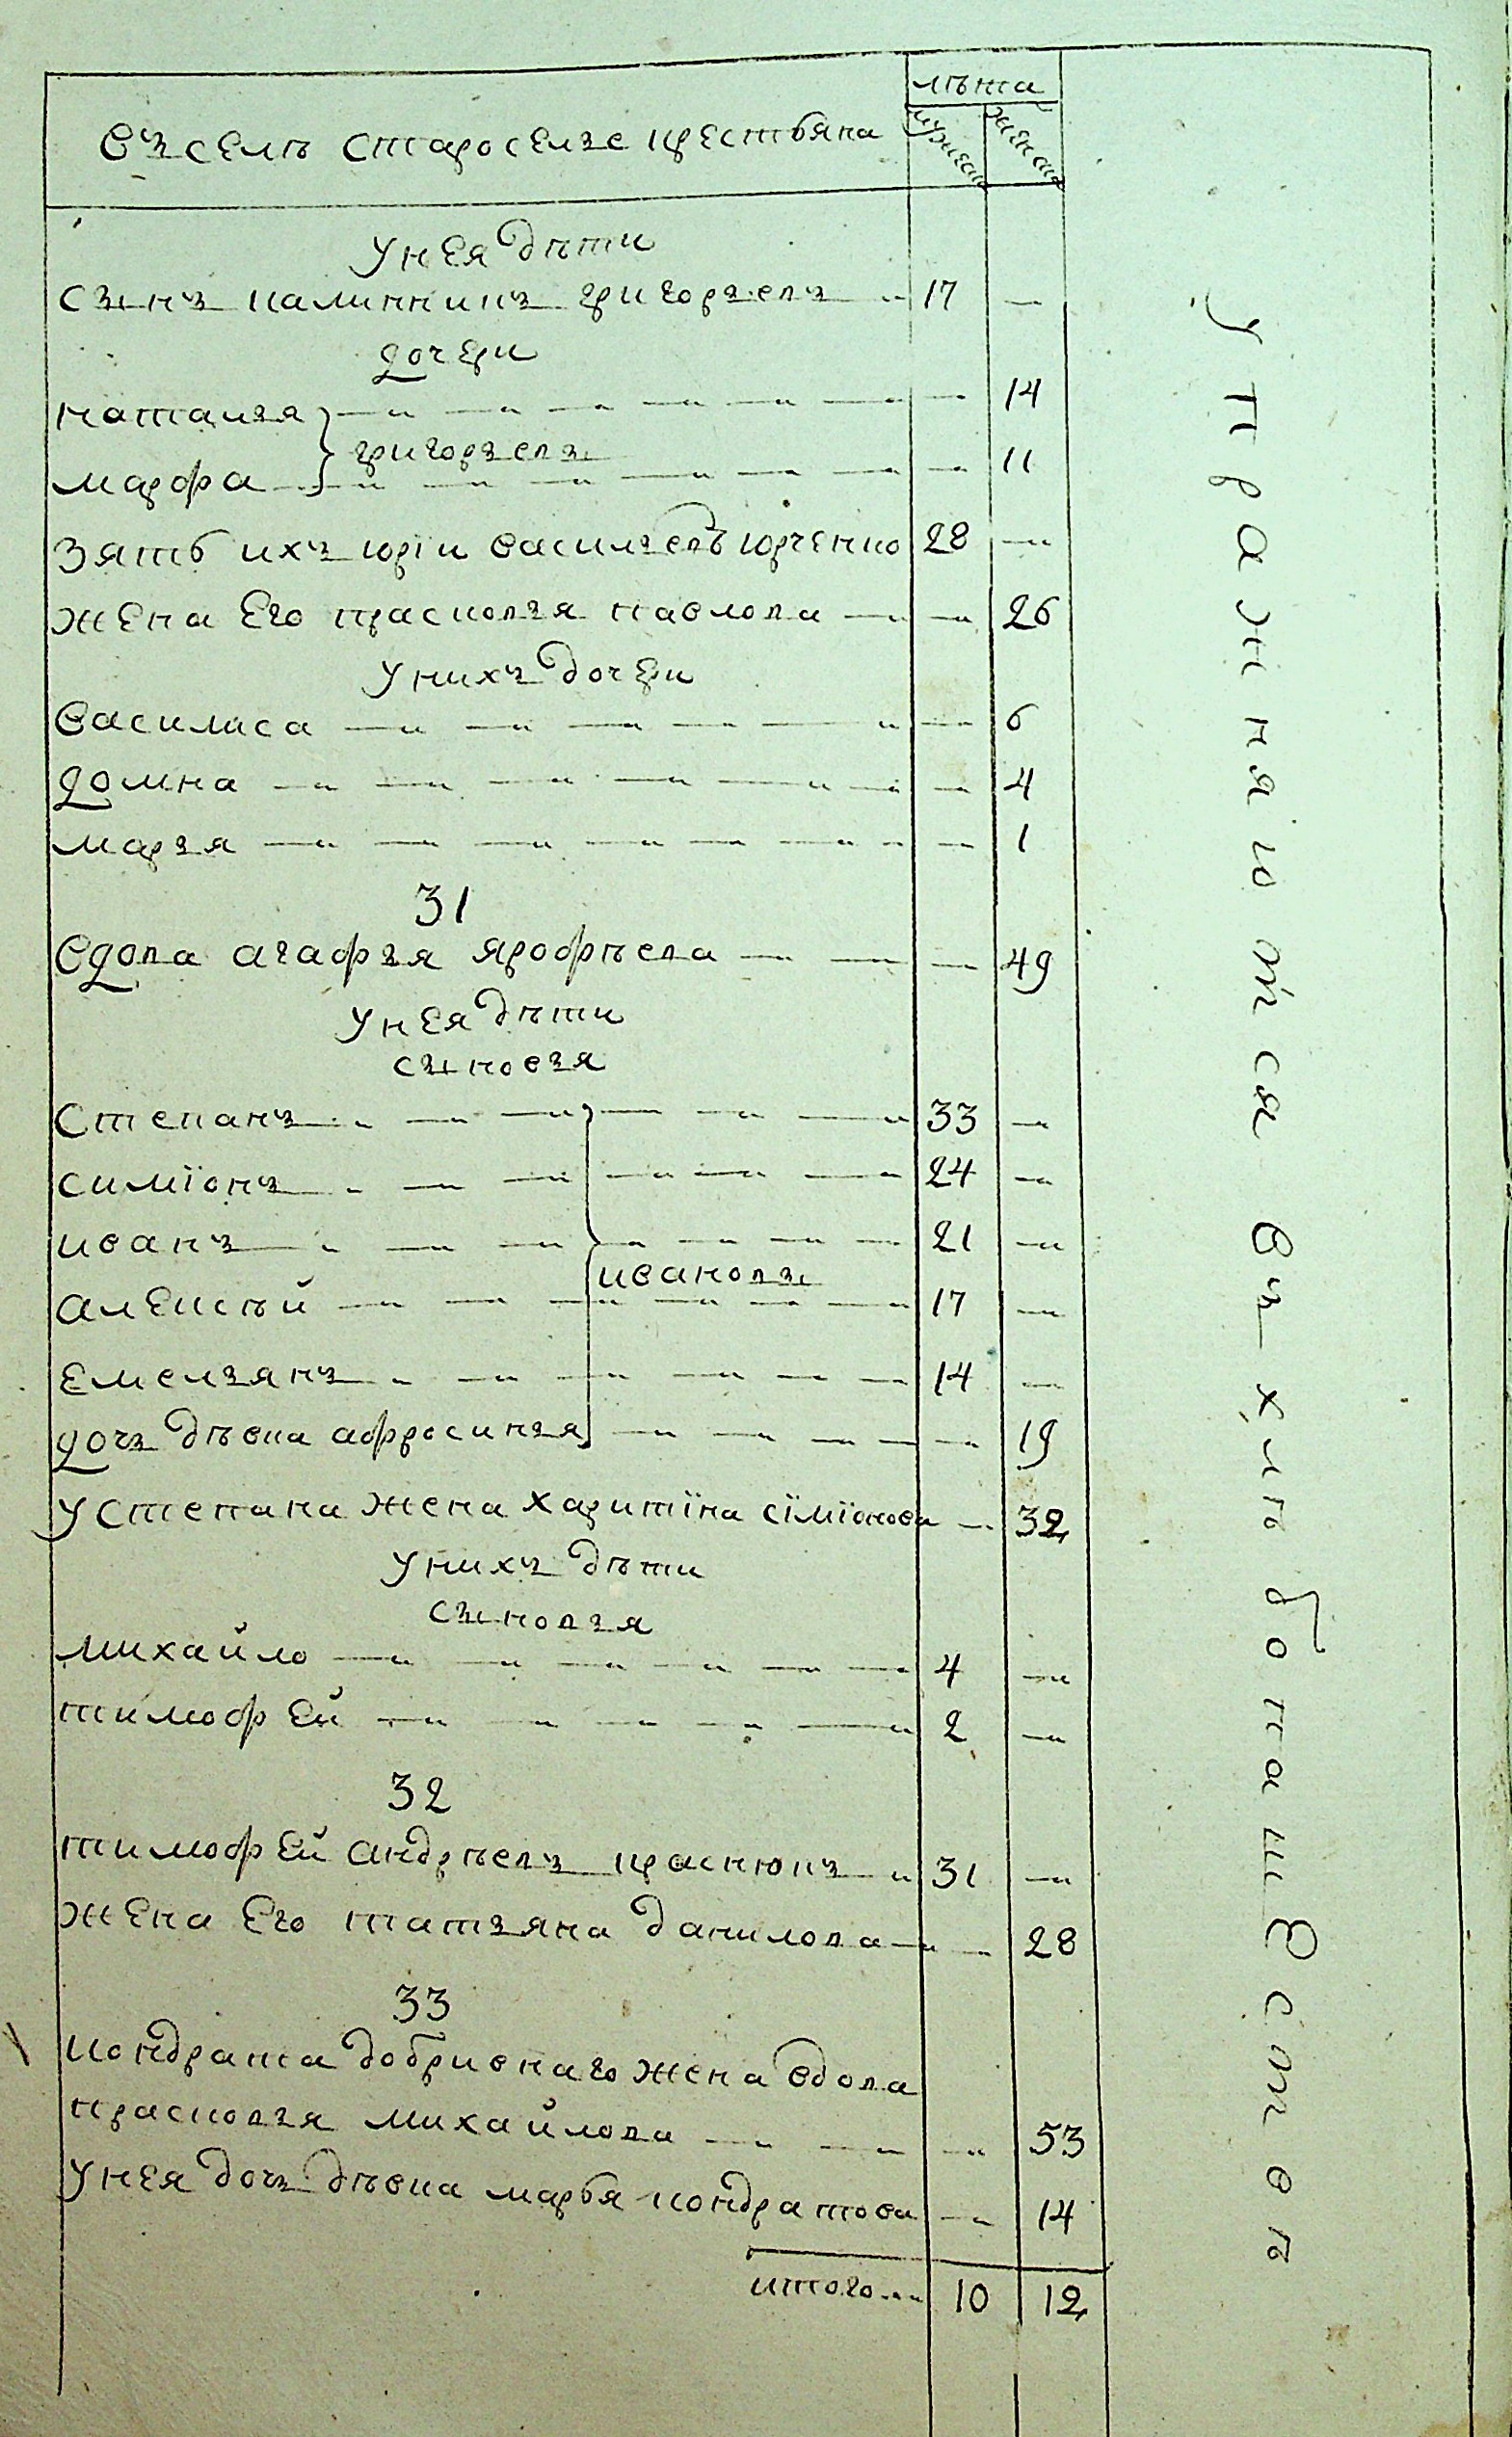 лѣта
Въ селѣ староселье крестьяна
мужеск
женск
У нея дѣти
сынъ калинникъ григорьевъ 17 —
дочери
наталья 14
григорьевы
марфа 11
Зять ихъ юрiи васильевъ юрченко 28 —
жена Его прасковья павлова 26
У нихъ дочери
василиса 6
домна 4
марья 1
31
вдова агафья ярофѣева 49
У нея дѣти
сыновья
степанъ 33 —
симїонъ 24 —
иванъ 21 —
ивановы
алексѣй 17 —
Емельянъ 14 —
дочь дѣвка афросинья 19
У степана жена харитїна сїмїонова 32
У нихъ дѣти
сыновья
михайло 4 —
тимофей 2 —
32
тимофей андрѣевъ краснюкъ 31 —
жена Его татьяна данилова 28
33
кондрата добривнаго жена вдова
прасковья михайлова 53
У нея дочь дѣвка марья кондратова 14
итого 10 12
Упражняются въ хлѣбопашествѣ